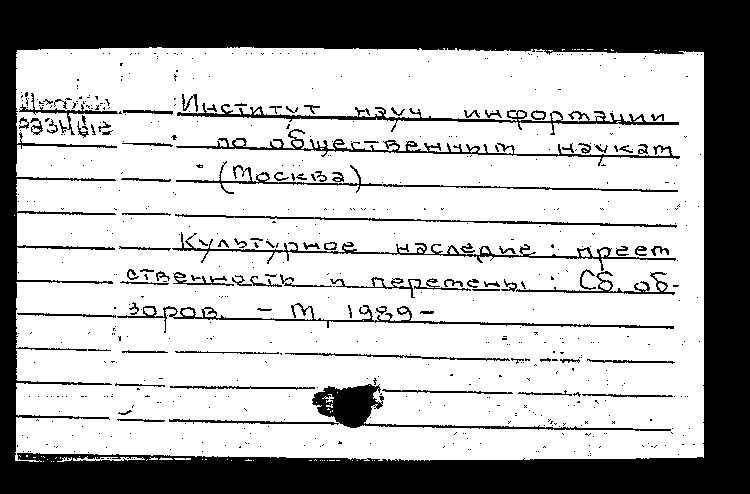 Шифры
разные
Институт науч. информации
по общественным наукам
(Москва)
Культурное наследие : преем
ственность и перемены : Сб. об-
зоров. - М, 1989-